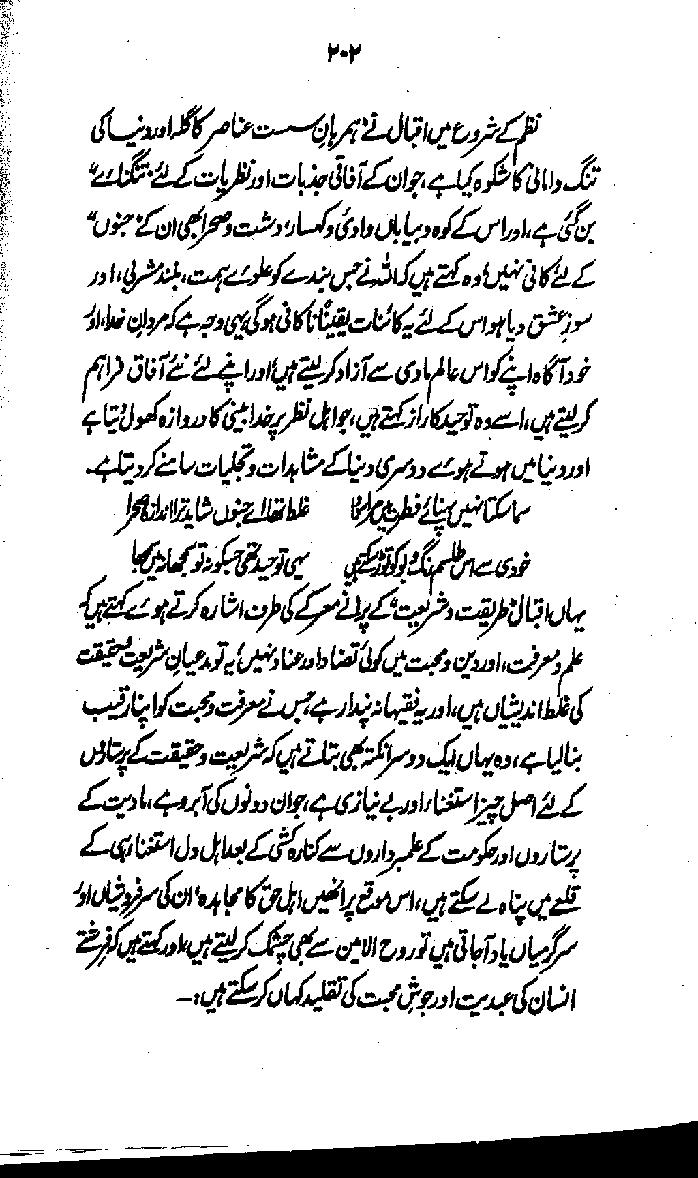 ۲۰۲
نظم کے شروع میں اقبال نے "ہمرہانِ سست عناصر کا گلہ اور دنیا کی
تنگ دامانی کا شکوہ کیا ہے، جوان کے آفاقی جذبات اور نظریات کے لئے "تنگنائے"
بن گئی ہے، اور اس کے کوہ و بیاباں وادی و کہسار، دشت و صحرا بھی ان کے "جنوں"
کے لئے کافی نہیں، وہ کہتے ہیں کہ اللہ نے جس بندے کو علوئے ہمت، بلند مشربی، اور
سوز عشق دیا ہو اس کے لئے یہ کائنات یقیناً ناکافی ہوگی یہی وجہ ہے کہ مردانِ خدا، اور
خود آگاہ اپنے کو اس عالم مادی سے آزاد کر لیتے ہیں، اور اپنے لئے نئے آفاق فراہم
کر لیتے ہیں، اسے وہ توحید کا راز کہتے ہیں، جو اہل نظر پر خدا بینی کا دروازہ کھول دیتا ہے
اور دنیا میں ہوتے ہوئے دوسری دنیا کے مشاہدات و تجلیات سامنے کر دیتا ہے۔
سما سکتا نہیں پہنائے فطرت میں مرا سودا غلط تھا اے جنوں شاید ترا اندازہ صحرا
خودی سے اس طلسم رنگ و بو کو توڑ سکتے ہیں یہی توحید تھی جس کو نہ تو سمجھا نہ میں سمجھا
یہاں اقبال "طریقت و شریعت" کے پرانے معرکے کی طرف اشارہ کرتے ہوئے کہتے ہیں کہ
علم و معرفت، اور دین و محبت میں کوئی تضاد اور عناد نہیں، یہ تو مدعیانِ شریعت و حقیقت
کی غلط اندیشیاں ہیں، اور یہ فقیہانہ پندار ہے، جس نے معرفت و محبت کو اپنا رقیب
بنا لیا ہے، وہ یہاں ایک دوسرا نکتہ بھی بتلاتے ہیں کہ شریعت و حقیقت کے پرستاروں
کے لئے اصل چیز استغناء اور بے نیازی ہے، جو ان دونوں کی آبرو ہے، مادیت کے
پرستاروں اور حکومت کے علمبرداروں سے کنارہ کشی کے بعد اہل دل استغنا ہی کے
قلعے میں پناہ لے سکتے ہیں، اس موقع پر انھیں اہل حق کا مجاہدہ، ان کی سرفروشیاں اور
سرگرمیاں یاد آجاتی ہیں تو روح الامین سے بھی چشمک کر لیتے ہیں، اور کہتے ہیں کہ فرشتے
انسان کی عبدیت اور جوش محبت کی تقلید کہاں کر سکتے ہیں:۔